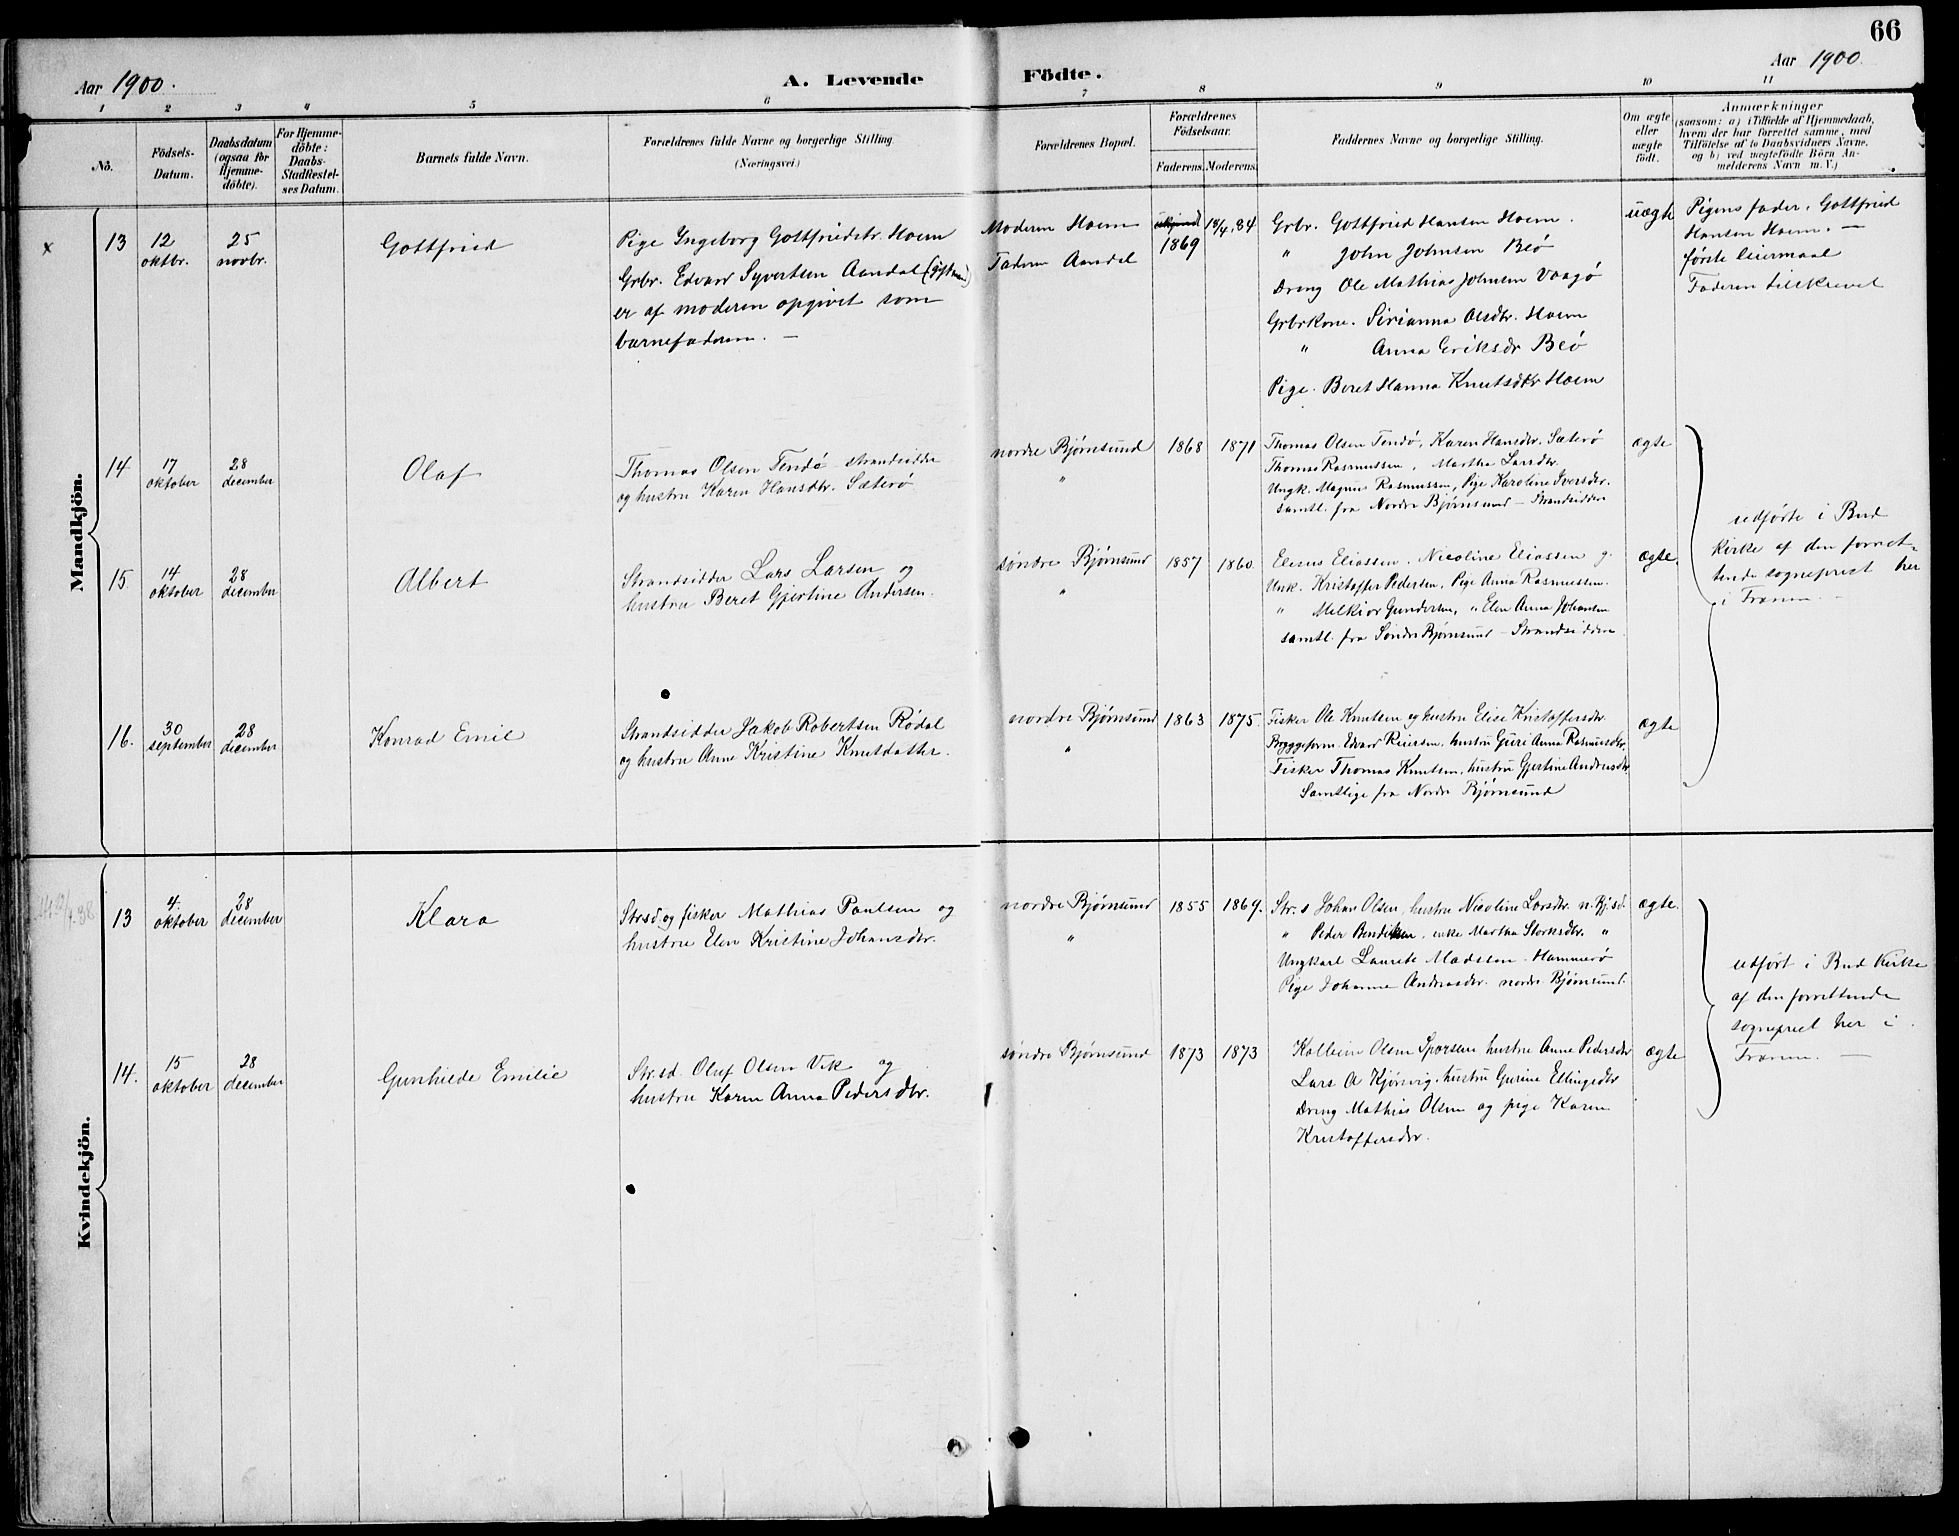 66
Aar 1900.
A. Levende Födte.
Aar 1900.
1 2 3 4 5 6 7 8 9 10 11
No.
Födsels-Datum.
Daabsdatum (ogsaa for Hjemme-döbte).
For Hjemme-döbte: Daabs-Stadfæstel-ses Datum.
Barnets fulde Navn.
Forældrenes fulde Navne og borgerlige Stilling.
(Næringsvei.)
Forældrenes Bopæl.
Forældrenes Födselsaar.
Faderens. Moderens.
Faddernes Navne og borgerlige Stilling.
Om ægte eller uægte födt.
Anmærkninger
(saasom: a) i Tilfælde af Hjemmedaab,
hvem der har forrettet samme, med
Tilföielse af to Daabsvidners Navne,
og b) ved uægtefödte Börn An-
melderens Navn m. V.)
Mandkjön.
x 13 12 oktbr. 25 novbr. Gottfried
Pige Ingeborg Gottfriedstr. Hoem
Grbr. Edvard Syvertsen Aandal (gift man)
er af moderen opgivet som
barnefaderen. —
Moderen Hoem
Faderen Aandal
ukjendt 1869
18/4.84
Grbr. Gottfried Hansen Hoem.
" John Johnsen Beö
Dreng Ole Mathias Johnsen Vaagö
Grbrkone. Sirianna Olsdtr. Hoem
" Anna Eriksdr Beö
Pige. Beret Hanna Knutsdtr Hoem
uægte
Pigens fader, Gottfried
Hansen Hoem. —
første leiermaal
Faderen tilskrevet
14 17 oktober 28 december Olaf
Thomas Olsen Tendö strandsidder
og hustru Karen Hansdtr. Sæterö
nordre Bjørnsund
"
1868 1871
Thomas Olsen Tendö, Karen Hansdtr. Sæterö
Thomas Rasmussen, Martha Larsdtr.
Ungk. Magnus Rasmussen, Pige Karoline Iversdtr.
samtl. fra Nordre Bjørnsund – Strandsiddere
ægte
udførte i Bud
Kirke af den forret-
tende sogneprest her
i Frænen. —
15. 14 oktober 28 december Albert
Strandsidder Lars Larsen og
hustru Beret Gjertine Andersen.
søndre Bjørnsund
"
1857 1860.
Elesus Eliassen, Nicoline Eliassen g.
Unk. Kristoffer Pedersen, Pige Anna Rasmussen.
" Melkior Gundersen, " Elen Anna Johansen
samtl. fra Søndre Bjørnsund – Strandsiddere.
ægte.
16. 30 september 28 december Konrad Emil
Strandsidder Jakob Robertsen Rødal
og hustru Anne Kristine Knutdatter.
nordre Bjørnsund
"
1863 1875.
Fisker Ole Knutsen og hustru Elise Kristoffersdtr.
Byggeform. Edvard Reiersen, hustru Guri Anna Rasmusdtr.
Fisker Thomas Knutsen, hustru Gjertine Andersdtr.
Samtlige fra Nordre Bjørnsund
ægte
Kvindekjön.
13 4. oktober 28 december Klara
Strsd. og fisker Mathias Paulsen og
hustru Elen Kristine Johansdtr.
nordre Bjørnsund
"
1855 1869.
Str. s Johan Olsen, hustru Nicoline Larsdtr. n. Bj.sd.
" Peder Bendiksen, enke Martha Storksdtr. "
Ungkarl Laurits Madssen Hammerö
Pige Johanna Andreasdtr. nordre Bjørnsund.
ægte.
udført i Bud Kirke
af den forrettende
sogneprest her i
Frænen. —
14. 15 oktober 28 december Gunhilde Emilie
Str.sd. Oluf Olsen Vik og
hustru Karen Anna Pedersdtr.
søndre Bjørnsund
1873 1873
Kolbein Olsen Sporsem hustru Anne Pedersdtr
Lars A Kjørvig, hustru Gurine Ellingsdtr
Dreng Mathias Olsen og pige Karen
Kristoffersdtr.
ægte